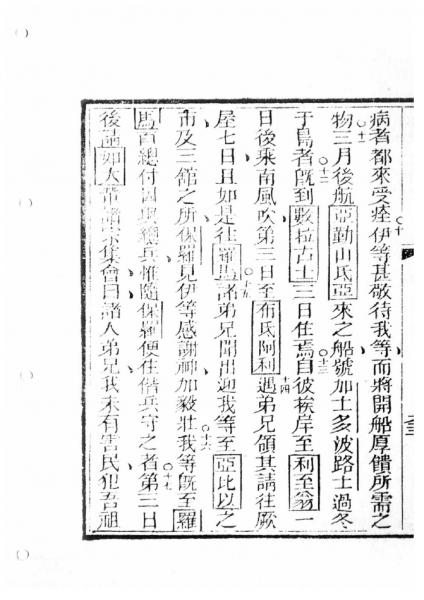 病者都來受痊○十伊等甚敬待我等而將開船厚饋所需之
物○十一三月後航亞勒山氐亞來之船號加士多波路士過冬
于島者○十二旣到數拉古士三日住焉○十三自彼挨岸至利至翁一
日後乘南風吹第二日至布氐阿利○十四遇弟兄領其請往厥
屋七日且如是往羅馬○十五諸弟兄聞出迎我等至亞比以之
市及三舘之所保羅見伊等感謝神加毅壯○十六我等旣至羅
馬百總付囚與總兵惟隨保羅便住偕兵守之者○十七第三日
後 如大 諸宗集會曰諸人弟兄我未有害民犯吾祖